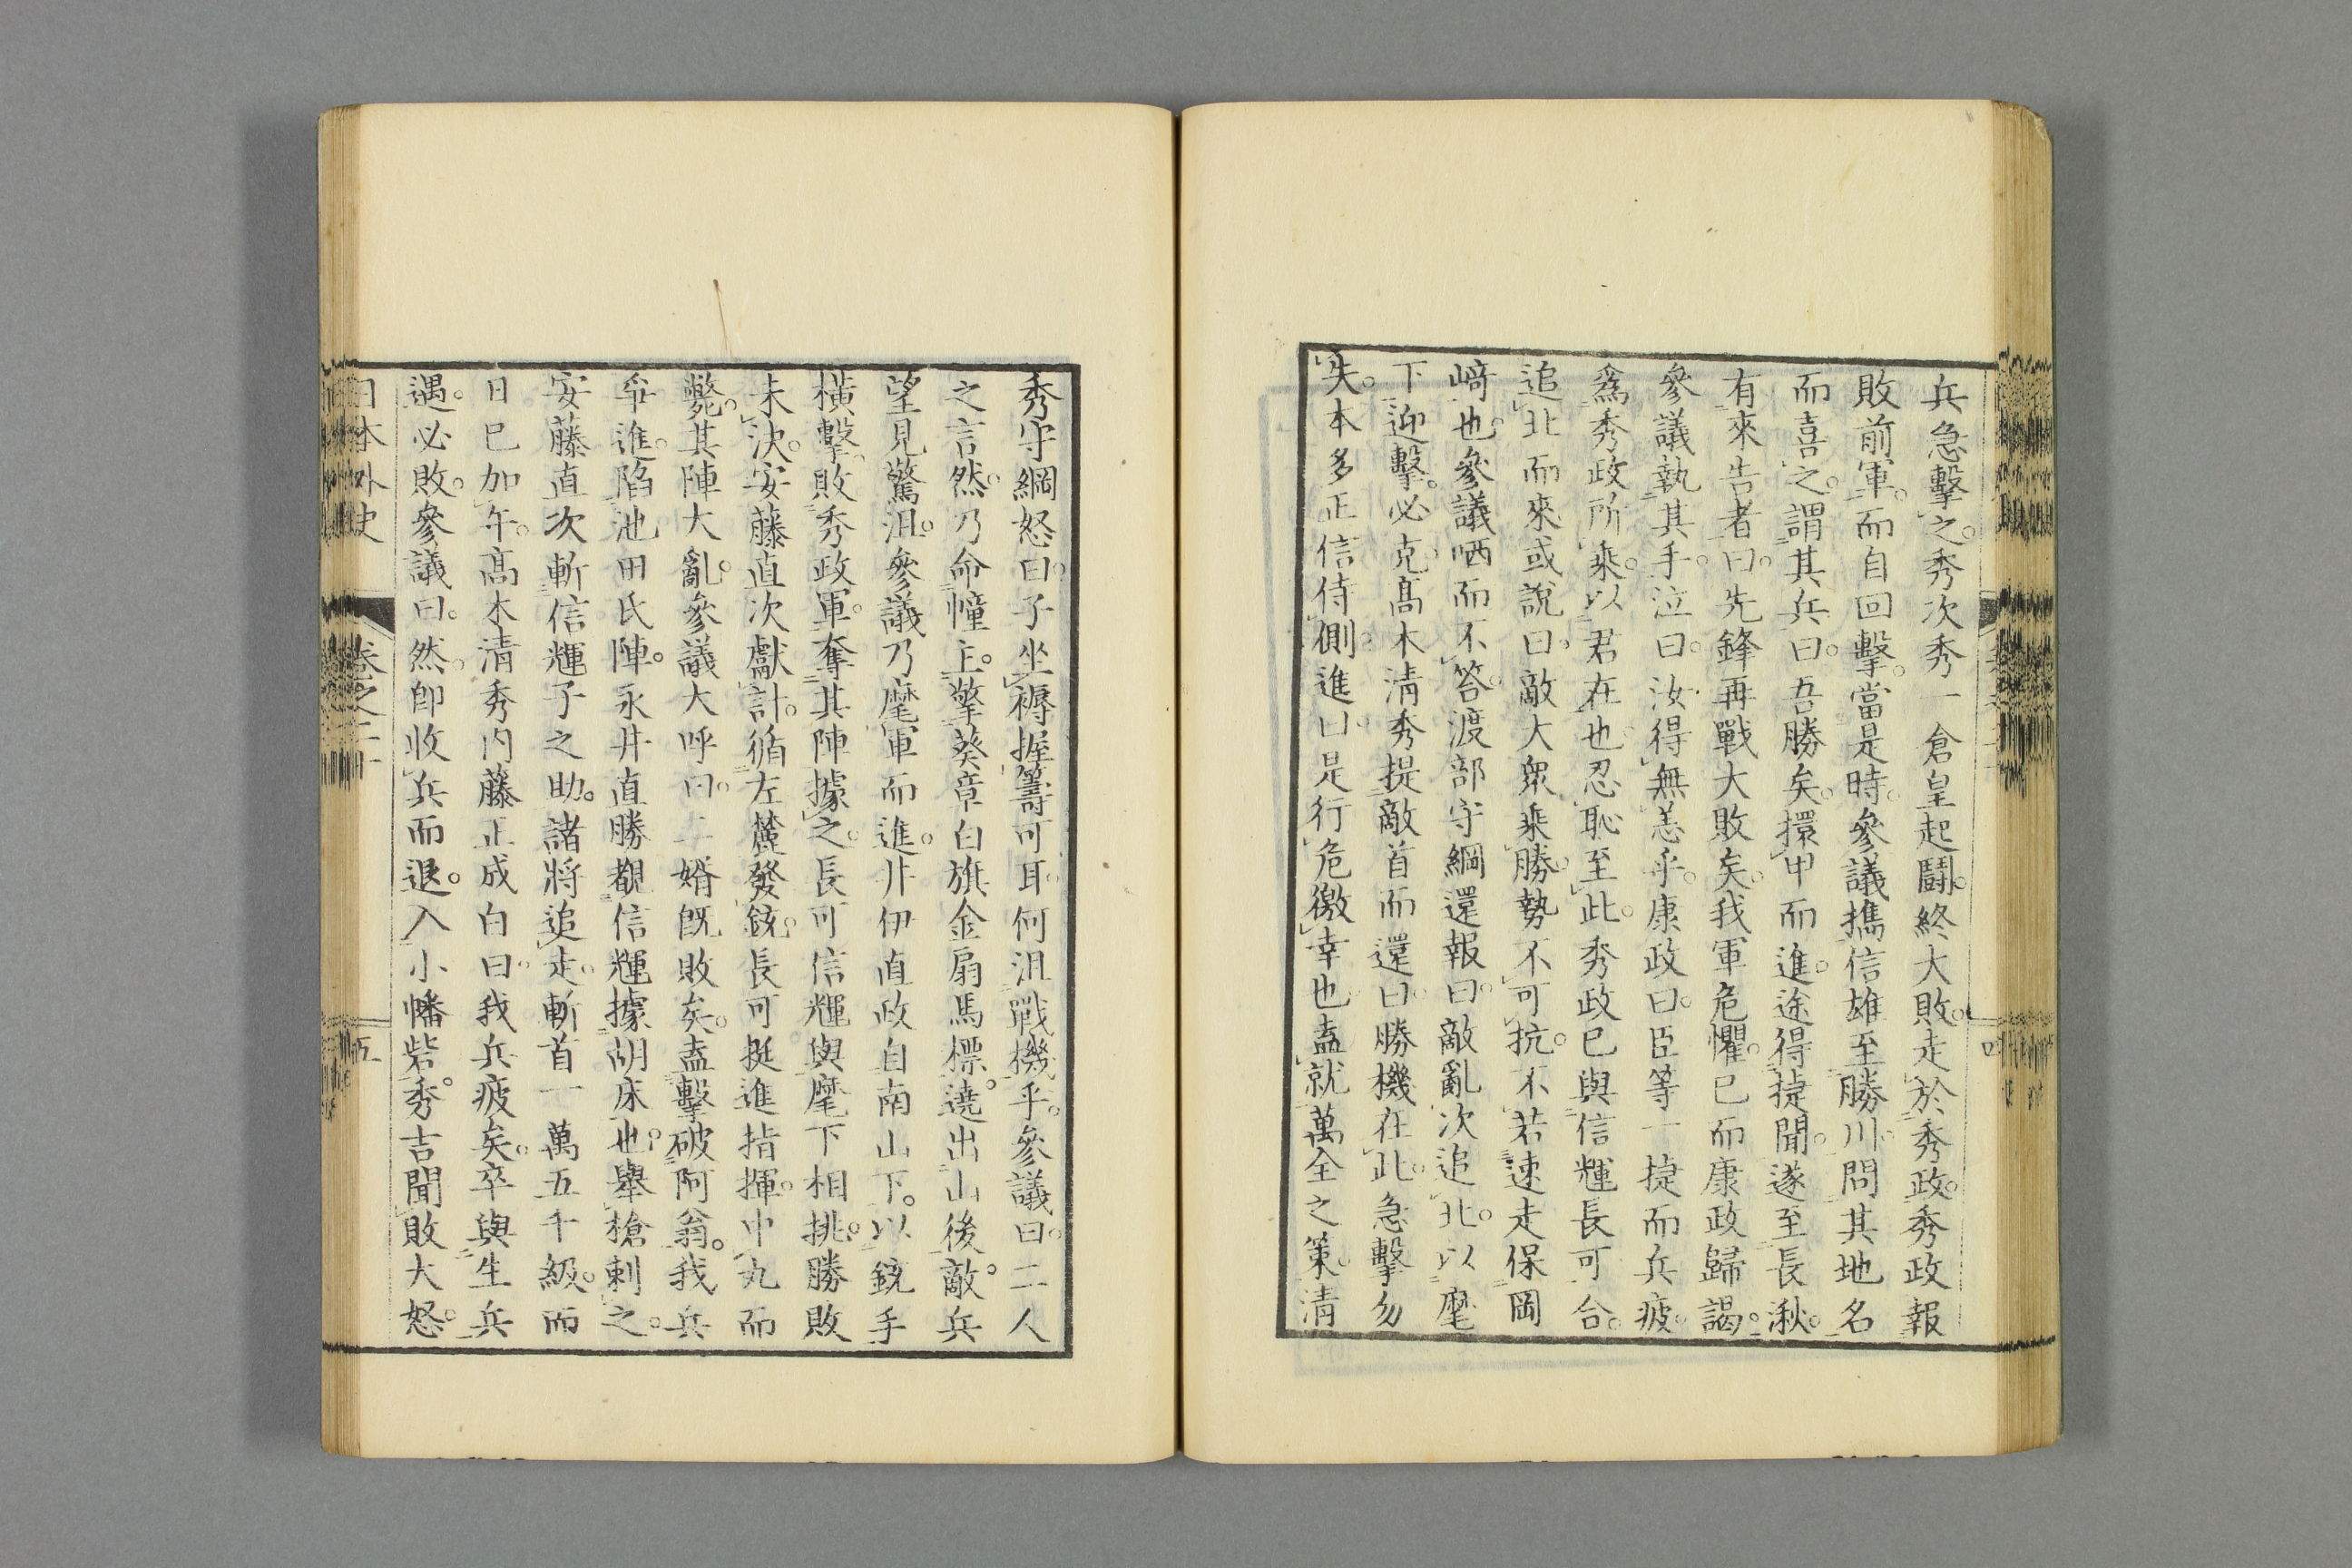 兵急擊之。秀次秀一倉皇起鬪。終大敗。走於秀政。秀政報
敗前軍。而自回擊。當是時。參議攜信雄至勝川。問其地名
而喜之。謂其兵曰。吾勝矣。擐甲而進。途得捷聞。遂至長湫。
有來告者曰。先鋒再戰大敗矣。我軍危懼。已而康政歸謁。
參議執其手。泣曰。汝得無恙乎。康政曰。臣等一捷而兵疲。
爲秀政所乘。以君在也。忍恥至此。秀政已與信輝長可合。
追北而來。或說曰。敵大衆乘勝。勢不可抗。不若速走保岡
﨑也。參議哂而不答。渡部守綱還報曰。敵亂次追北。以麾
下迎擊。必克。髙木淸秀提敵首而還曰。勝機在此。急擊勿
失。本多正信侍側。進曰。是行危徼幸也。盍就萬全之策。淸
秀守綱怒曰。子坐褥握籌可耳。何沮戰機乎。參議曰。二人
之言然。乃命幢主。擎葵章白旗金扇馬標。遶出山後。敵兵
望見驚沮。參議乃麾軍而進。井伊直政自南山下。以銃手
橫擊。敗秀政軍。奪其陣據之。長可信輝與麾下相挑。勝敗
未決。安藤直次獻計。循左麓發銃。長可挺進指揮。中丸而
斃。其陣大亂。參議大呼曰。二婿既敗矣。盍擊破阿翁。我兵
爭進。陷池田氏陣。永井直勝覩信輝據胡床也。舉槍刺之。
安藤直次斬信輝子之助。諸將追走。斬首一萬五千級。而
日已加午。髙木清秀内藤正成白曰。我兵疲矣。卒與生兵
遇。必敗。參議曰。然。卽收兵而退。入小幡砦。秀吉聞敗大怒。
日本外史 卷之二十 五